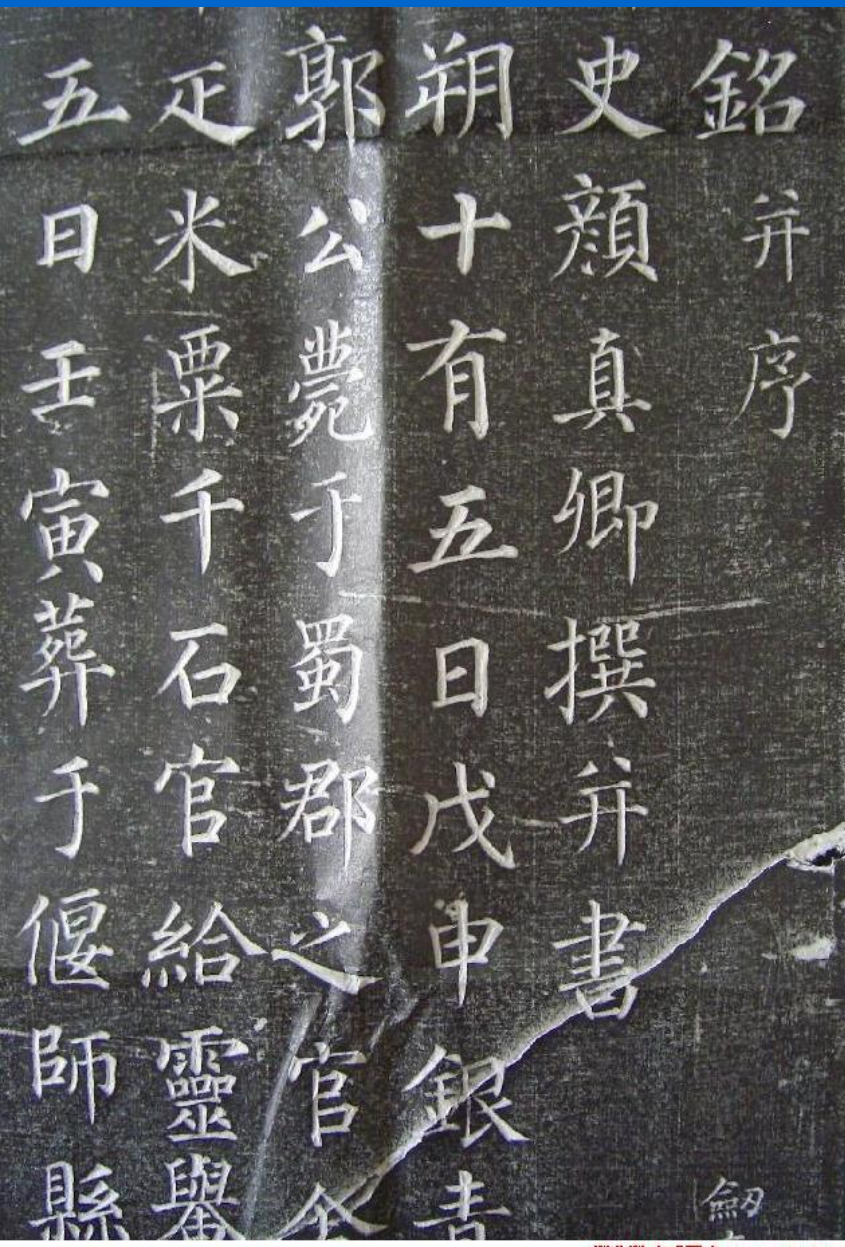 銘并序
史顏真卿撰并書
朔十有五日戊申銀青
郭公薨于蜀郡之官舍
疋米粟千石官給靈轝
五日壬寅葬于偃師縣
劒